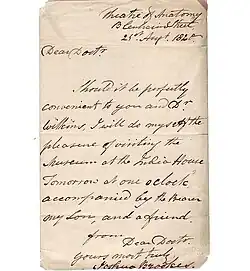 Theatre of Anatomy
Blenheim Street
25th Augt. 182
Dear Doctr.
Should it be perfectly
convenient to you and Dr
Wilkins, I will do myself the
pleasure of visiting the
Museum at the India House
Tomorrow at one o'clock
accompanied by the Bearer
my Son, and a friend
from
Dear Doctr.
yours most truly
Joshua Brookes.